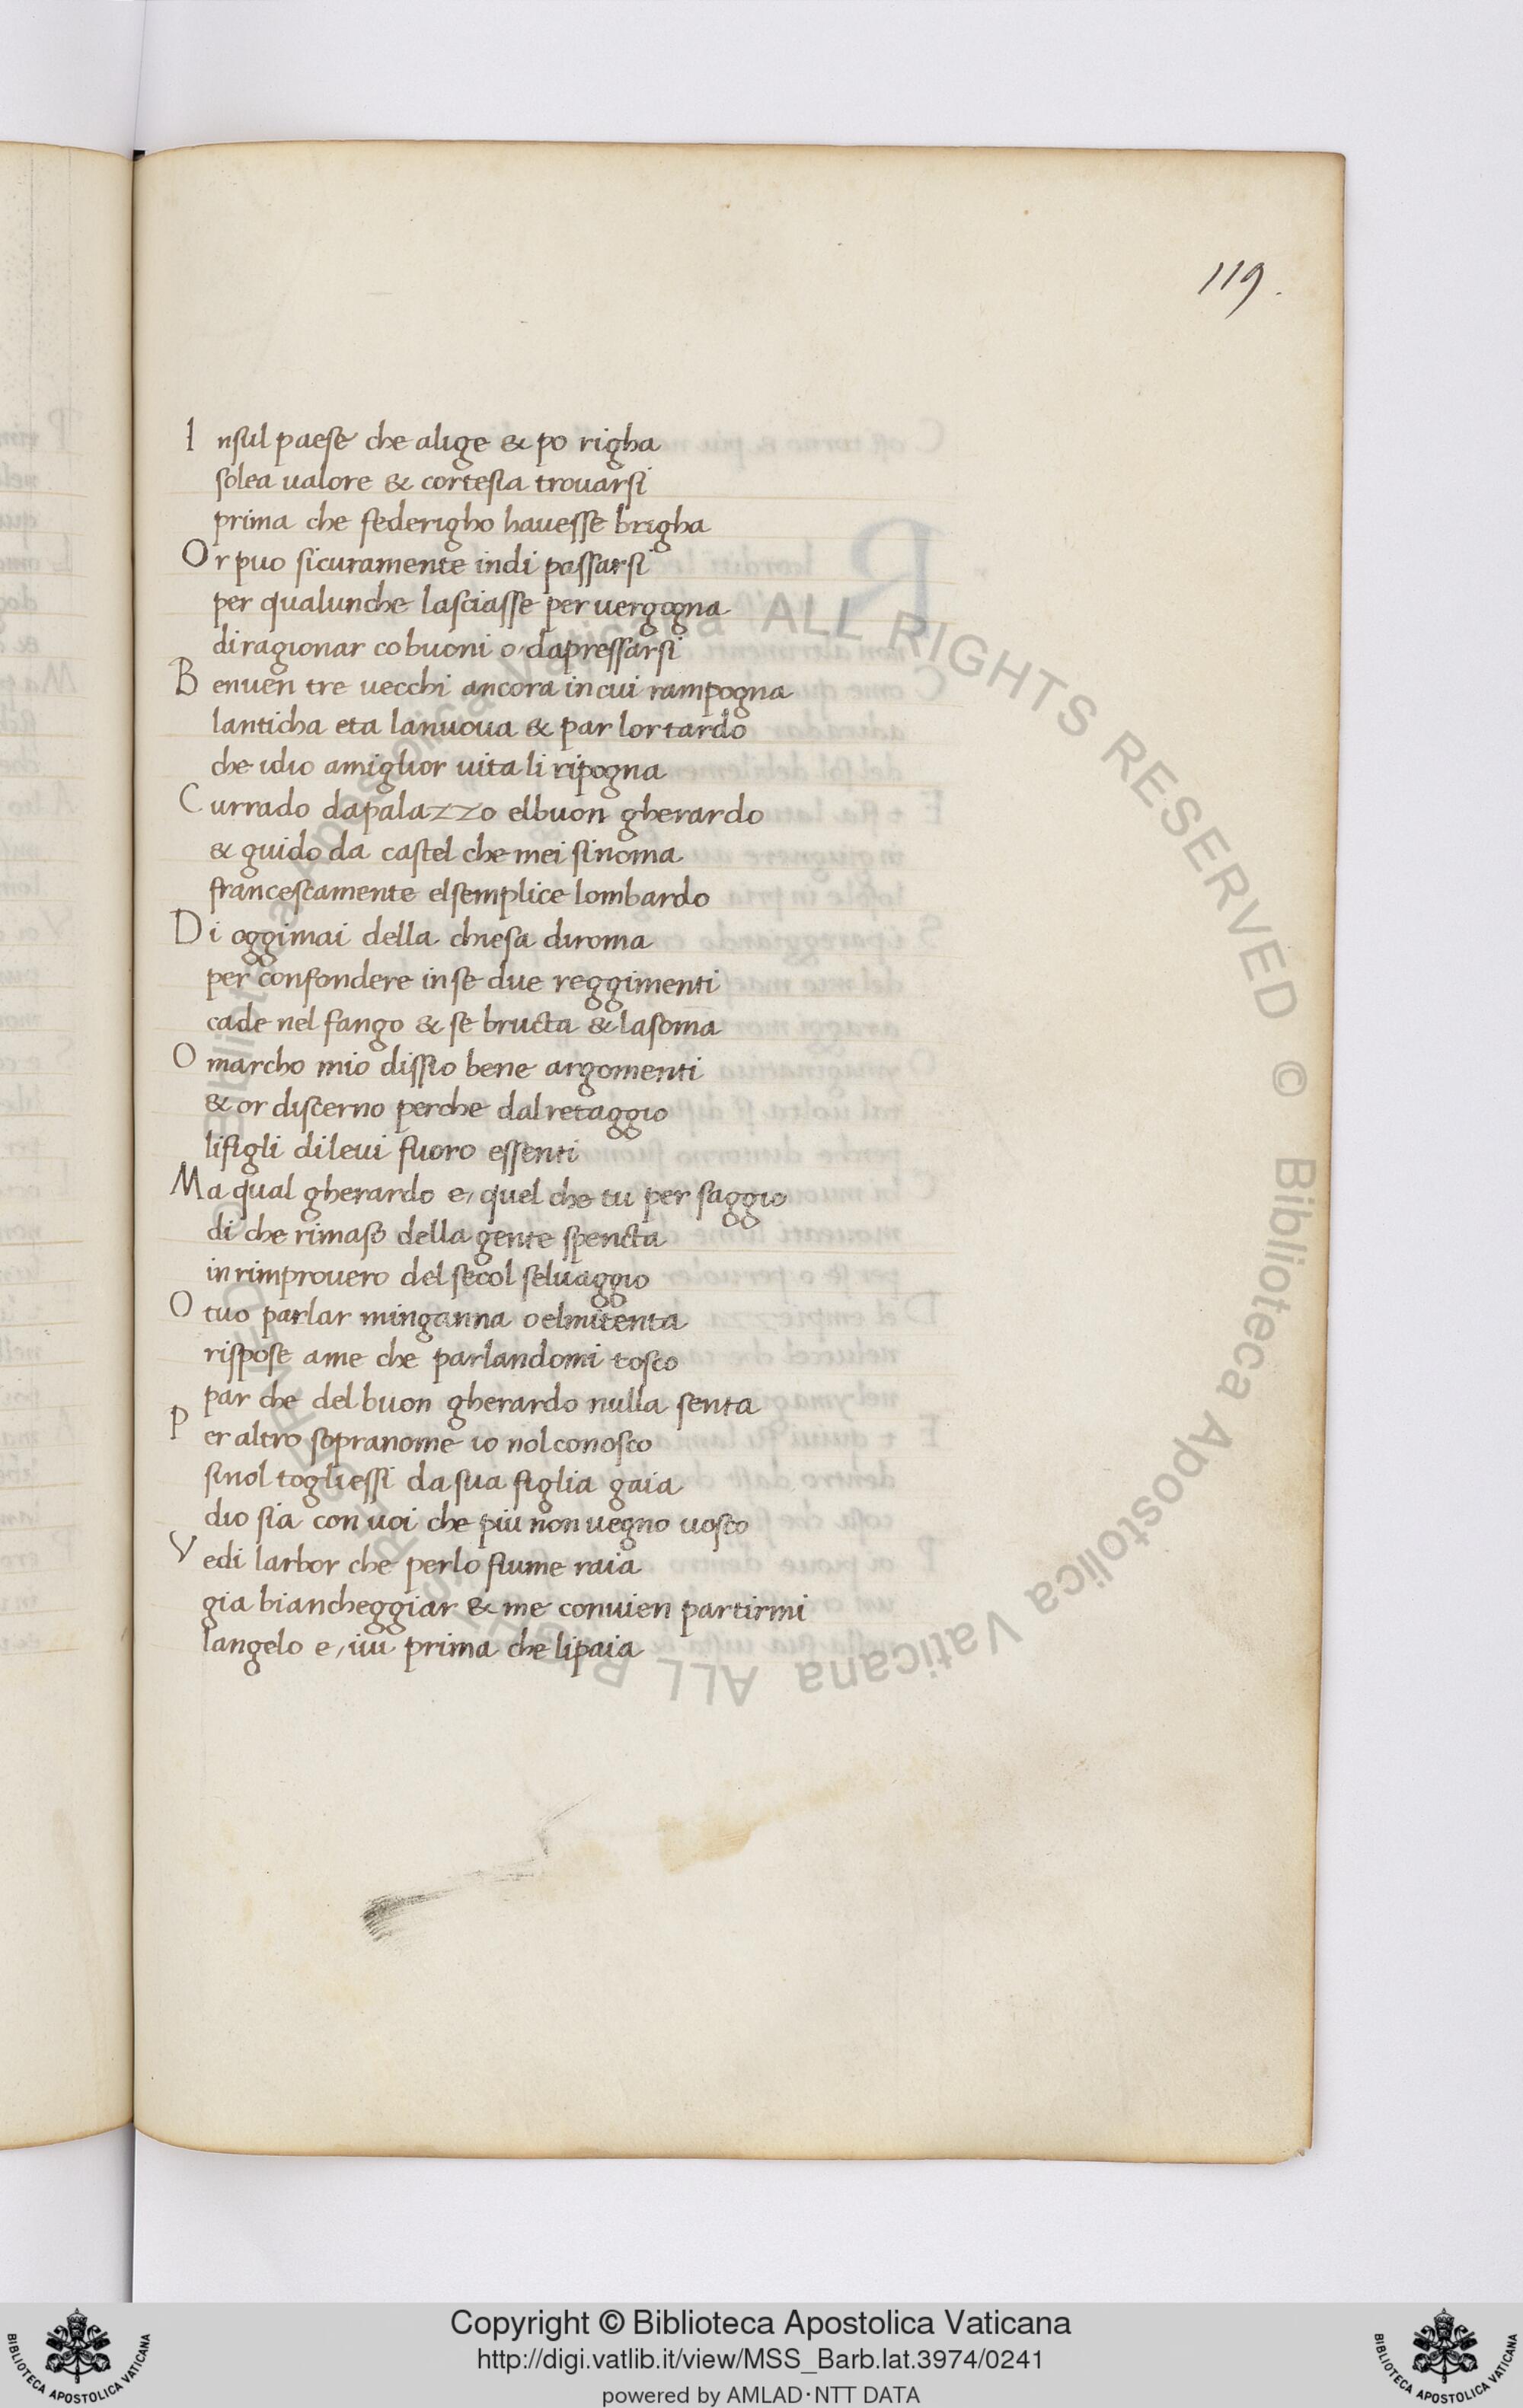 119.
I nsul paese che alige & po righa
solea ualore & cortesia trouarsi
prima che federigho hauesse brigha
Or puo sicuramente indi passarsi
per qualunche lasciasse per uergogna
di ragionar co buoni o, dapressarsi
B enuen tre uecchi ancora in cui rampogna
lanticha eta lanuoua & par lor tardo
che idio amiglior uita li ripogna
C urrado dapalazzo elbuon gherardo
& guido da castel che mei sinoma
francescamente elsemplice lombardo
D i oggimai della chiesa diroma
per confondere in se due reggimenti
cade nel fango & se bructa & lasoma
O marcho mio dissio bene argomenti
& or discerno perche dal retaggio
lifigli dileui fuoro essenti
M a qual gherardo e, quel che tu per saggio
di che rimaso della gente spencta
in rimprouero del secol seluaggio
O tuo parlar minganna o elmitenta
rispose ame che parlandomi tosco
par che del buon gherardo nulla senta
P er altro sopranome io nol conosco
sinol togliessi da sua figlia gaia
dio sia con uoi che piu non uegno uosco
V edi larbor che perlo fiume raia
gia biancheggiar & me conuien partirmi
langelo e, iui prima che lipaia
© Biblioteca Apostolica Vaticana ALL RIGHTS RESERVED © Biblioteca Apostolica Vaticana ALL RIGHTS RESERVED
Copyright © Biblioteca Apostolica Vaticana
http://digi.vatlib.it/view/MSS_Barb.lat.3974/0241
powered by AMLAD·NTT DATA
BIBLIOTECA APOSTOLICA VATICANA
BIBLIOTECA APOSTOLICA VATICANA